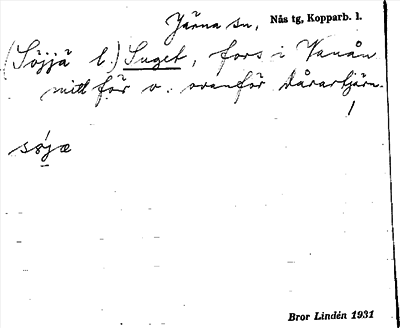 Järna sn, Nås tg, Kopparb. l.
(Söjjä l.) Suget, fors i Vanån
mitt för o. ovanför Kårartjärn.
søjæ
Bror Lindén 1931